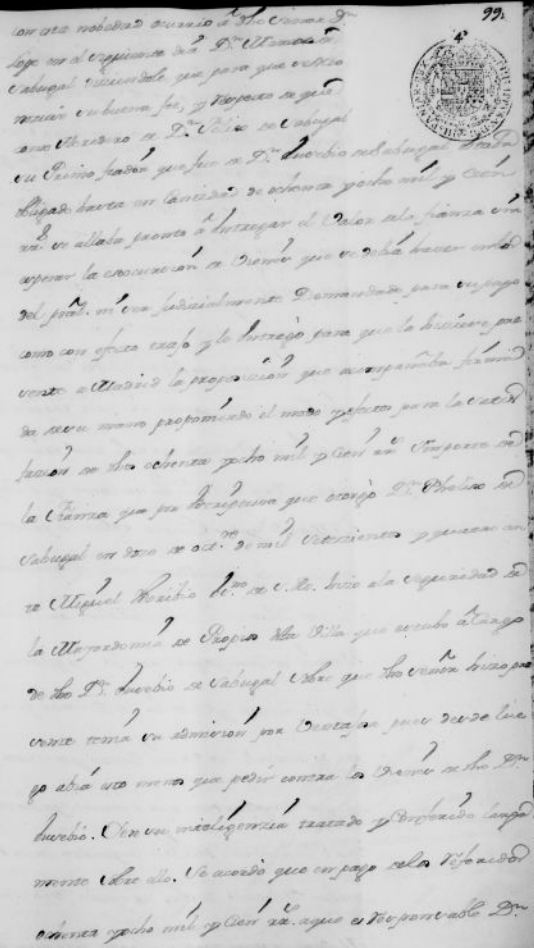 99.
con esta nobedad ocurrio a dho Señor Dn
Lope en el siguiente dia Dn Manuel
Sabugal diciendole que para que
su buena fee, y respecto de que
como heredero de Dn Felix de Sabugal
su Primo fiador que fue de Dn Eusevio de Sabugal
obligado hasta en Cantidad de ochenta y ocho mil y Cien
rrs. se allaba pronto a entregar el Valor de la fianza sin
esperar la execucion de vienes que se debia hacer
del pral. ni ser Judicialmente Demandado para su pago
como con efecto trajo y le entregò para que la hiciese pre
sente a Madrid la proposicion que acompañaba firma
da de su mano proponiendo el modo y efecto para la satis
facion de dhos ochenta y ocho mil y Cien rrs. Ymporte de
la fianza que por escriptura que otorgò Dn Phelix de
Sabugal en doze de octre. de mil setecientos y quarenta an
te Miguel Thoribio hizo a la seguridad de
la Mayordomia de Propios de la Villa que estubo a Cargo
de dho Dn. Eusevio de Sabugal sobre que dho señor hizo pre
sente tenia su admision por Ventajosa pues desde lue
go abia esto menos que pedir contra los vienes de dho Dn
Eusevio. De en su inteligencia tratado y conferido larga
mente sobre ello. Se acordò que en pago de los referidos
ochenta y ocho mil y Cien rrs. a que es responsable Dn